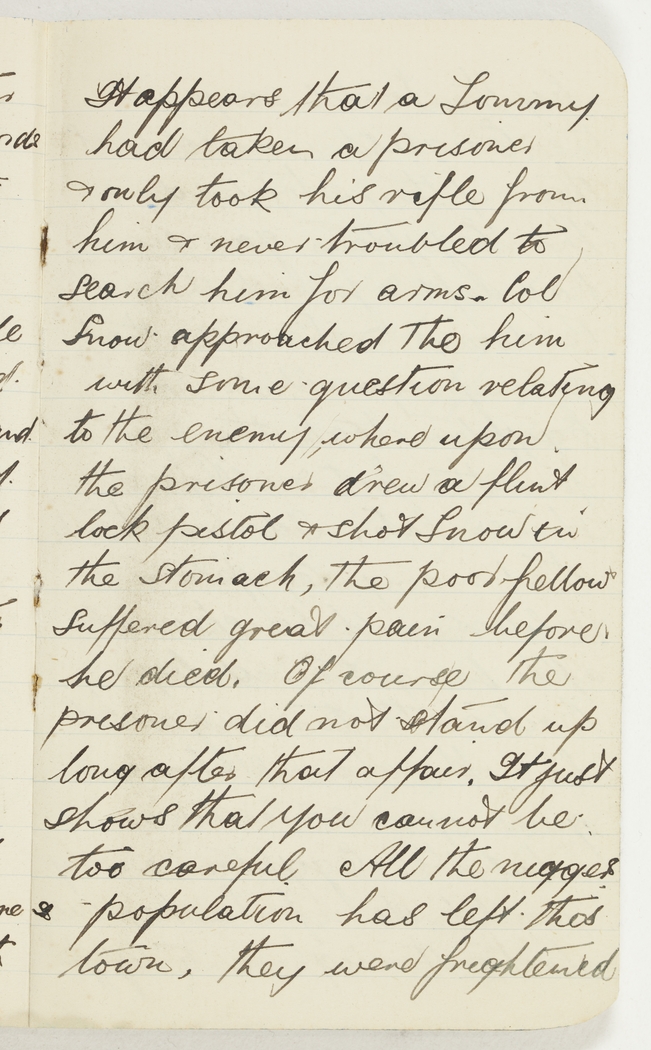 It appears that a Tommy
had taken a prisoner
& only took his rifle from
him & never troubled to
search him for arms. Col
Snow approached the him
with some question relating
to the enemy, where upon
the prisoner drew a flint
lock pistol & shot Snow in
the stomach, the poor fellow
suffered great pain before
he died. Of course the
prisoner did not stand up
long after that affair. It just
shows that you cannot be
too careful All the nigger
population has left this
town, they were freightened